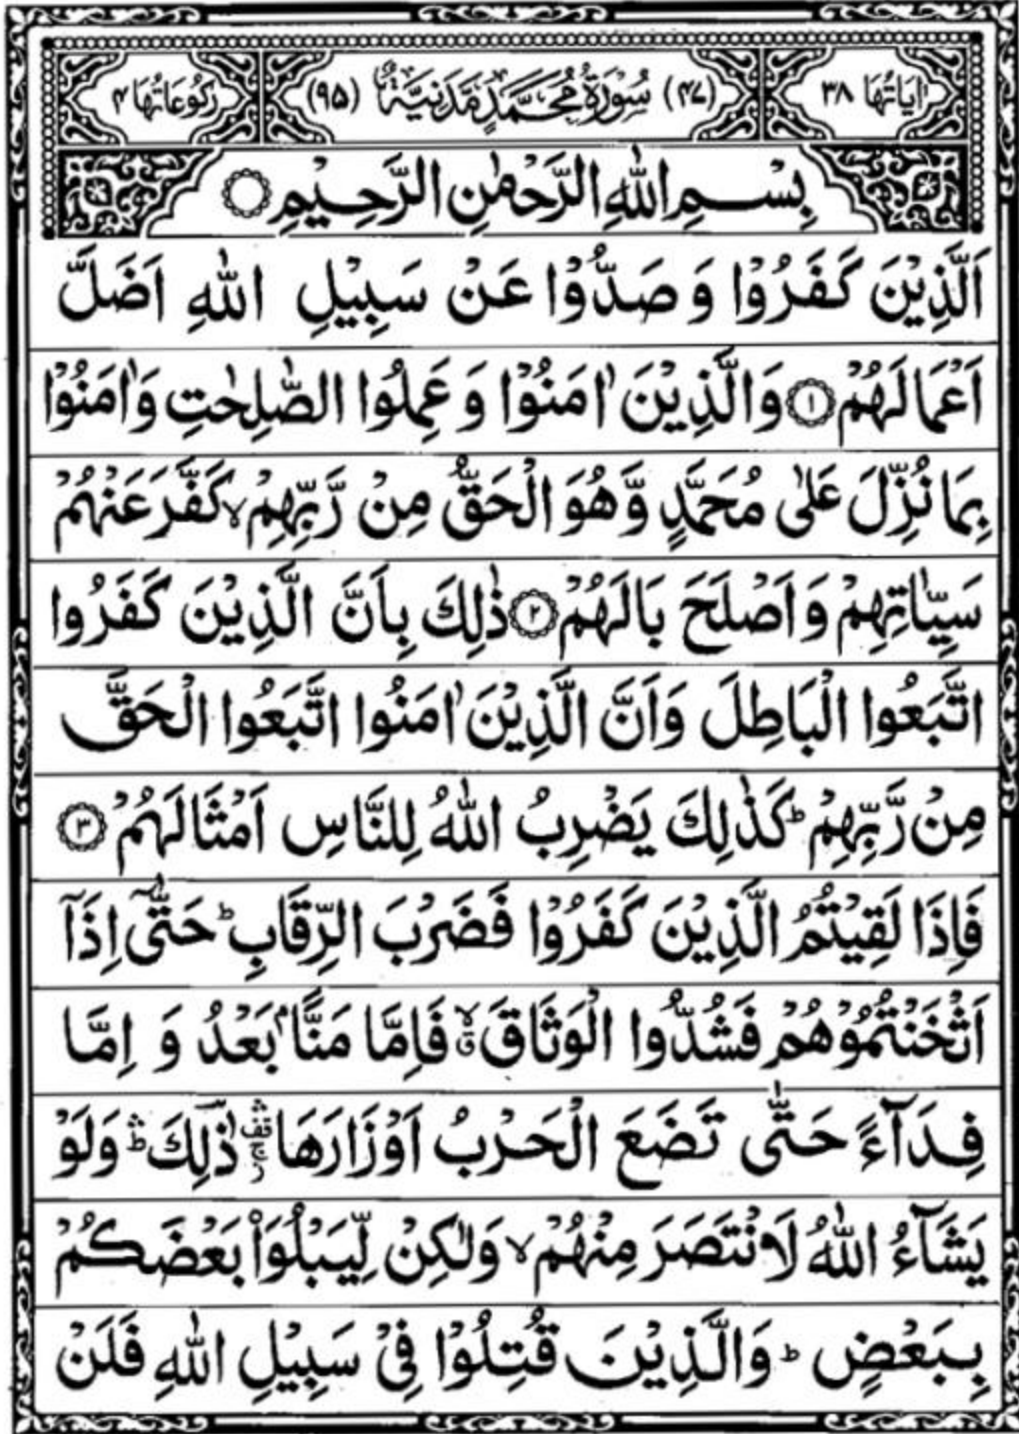 اٰیَاتُهَا ۳۸ (۴۷) سُوْرَةُ مُحَمَّدٍ مَّدَنِیَّةٌ (۹۵) رُكُوْعَاتُهَا ۴
بِسْمِ اللّٰهِ الرَّحْمٰنِ الرَّحِیْمِ
اَلَّذِیْنَ كَفَرُوْا وَ صَدُّوْا عَنْ سَبِیْلِ اللّٰهِ اَضَلَّ
اَعْمَالَهُمْ ۱ وَالَّذِیْنَ اٰمَنُوْا وَ عَمِلُوا الصّٰلِحٰتِ وَاٰمَنُوْا
بِمَا نُزِّلَ عَلٰی مُحَمَّدٍ وَّهُوَ الْحَقُّ مِنْ رَّبِّهِمْ ۙ كَفَّرَ عَنْهُمْ
سَیِّاٰتِهِمْ وَاَصْلَحَ بَالَهُمْ ۲ ذٰلِكَ بِاَنَّ الَّذِیْنَ كَفَرُوا
اتَّبَعُوا الْبَاطِلَ وَاَنَّ الَّذِیْنَ اٰمَنُوا اتَّبَعُوا الْحَقَّ
مِنْ رَّبِّهِمْ ؕ كَذٰلِكَ یَضْرِبُ اللّٰهُ لِلنَّاسِ اَمْثَالَهُمْ ۳
فَاِذَا لَقِیْتُمُ الَّذِیْنَ كَفَرُوْا فَضَرْبَ الرِّقَابِ ؕ حَتّٰۤی اِذَاۤ
اَثْخَنْتُمُوْهُمْ فَشُدُّوا الْوَثَاقَ ۙۗ فَاِمَّا مَنًّۢا بَعْدُ وَ اِمَّا
فِدَآءً حَتّٰی تَضَعَ الْحَرْبُ اَوْزَارَهَا ۛ۫ۚ ذٰلِكَ ۛؕ وَلَوْ
یَشَآءُ اللّٰهُ لَانْتَصَرَ مِنْهُمْ ۙ وَلٰكِنْ لِّیَبْلُوَا۠ بَعْضَكُمْ
بِبَعْضٍ ؕ وَالَّذِیْنَ قُتِلُوْا فِیْ سَبِیْلِ اللّٰهِ فَلَنْ